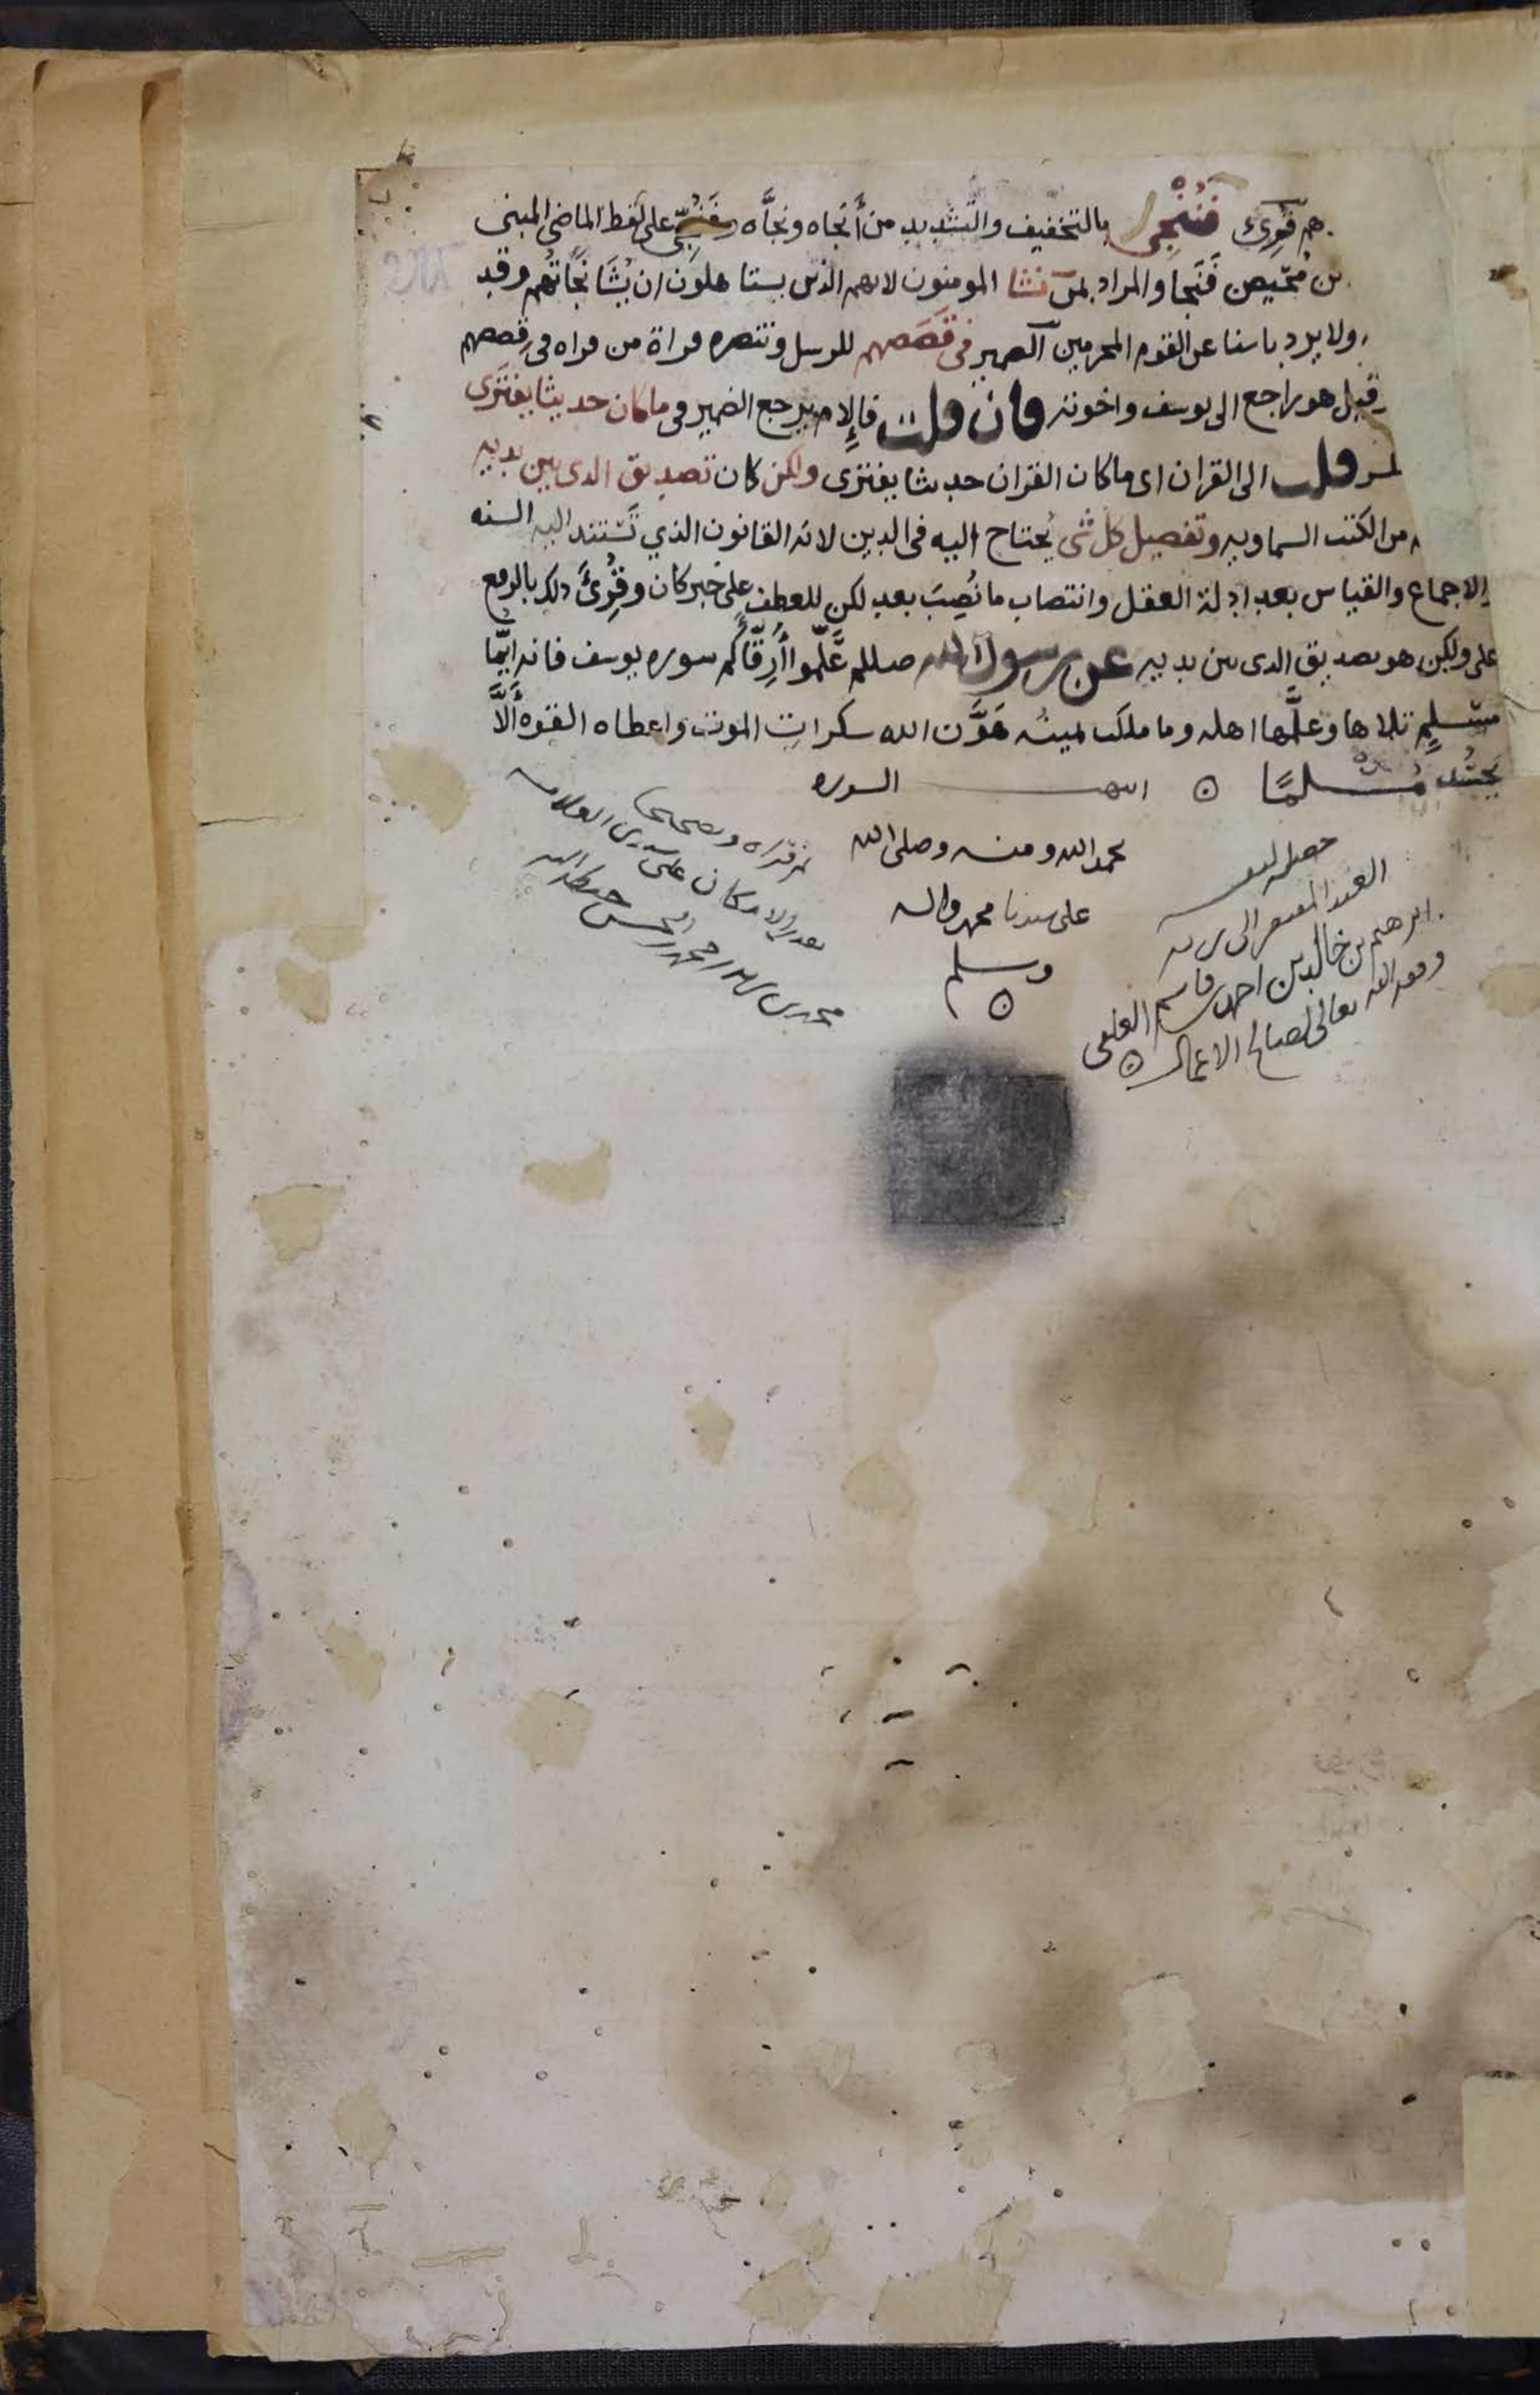 هم قُرِئ فَنُنْجِى بالتخفيف والتشديد من أَنجاه ونجَّاه وفَنُجِّىَ على لفظ الماضى المبنى
بن مُحَيصِن فَنَجا والمراد بمن نشا المومنون لانهم الذين يستاهلون ان يُشَا نَجَاتُهم وقد
ولا يرد باسنا عن القوم المجرمين الضمير فى قَصَصهم للرسل وتنصره قراة من قراه فى قِصصهم
وقيل هو راجع الى يوسف واخوته فان قلت فإلام يرجع الضمير فى ما كان حديثا يفترى
قلت الى القران اى ما كان القران حديثا يفترى ولكن كان تصديق الذى بين يديه
من الكتب السماويه وتفصيل كل شى يُحتاج اليه فى الدين لانه القانون الذي تستند اليه السنه
والاجماع والقياس بعد ادلة العقل وانتصاب ما نُصِبَ بعد لكن للعطف على خبر كان وقُرِئَ ذلك بالرفع
على ولكن هو تصديق الذى بين يديه عن رسول الله صللم عَلِّموا أَرِقَّاكُم سوره يوسف فانه ايُّما
مسلمٍ تلاها وعلَّمها اهله وما ملكت يمينُه هَوَّن الله سكراتِ الموت واعطاه القوه أَلَّا
يَحسُد مُسلمًا ن انتهت السوره
بحمد الله ومنه وصلى الله
على سيدنا محمد واله
وسلم
ن
العبد المفتقر الى
ابرهيم بن خالد بن احمد بن قاسم العلفى
وفقه الله تعالى لصالح الاعمال ن
بقدر الامكان على سيدى العلامه
حفظه الله